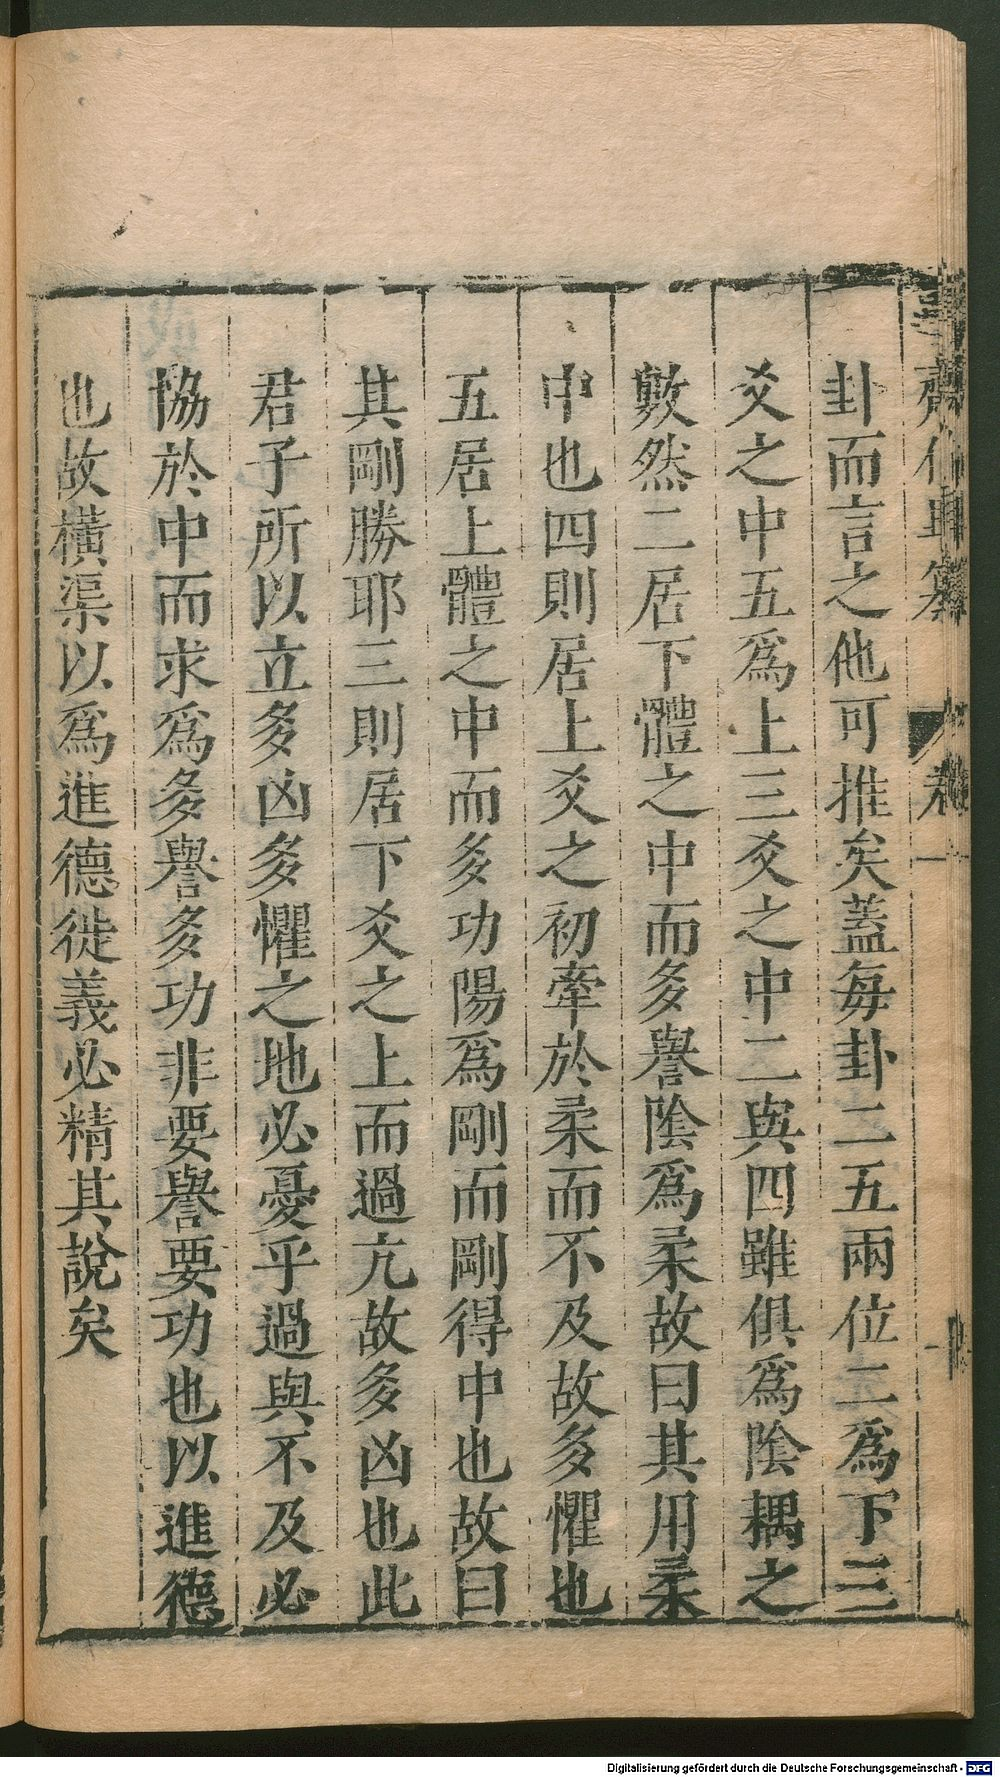 卦而言之他可推矣蓋每卦二五兩位二為下三
爻之中五為上三爻之中二與四雖俱為陰耦之
數然二居下體之中而多譽陰為柔故曰其用柔
中也四則居上爻之初牽於柔而不及故多懼也
五居上體之中而多功陽為剛而剛得中也故曰
其剛勝耶三則居下爻之上而過亢故多凶也此
君子所以立多凶多懼之地必憂乎過與不及必
協於中而求為多譽多功非要譽要功也以進德
也故橫渠以為進德徙義必精其說矣
Digitalisierung gefördert durch die Deutsche Forschungsgemeinschaft - DFG